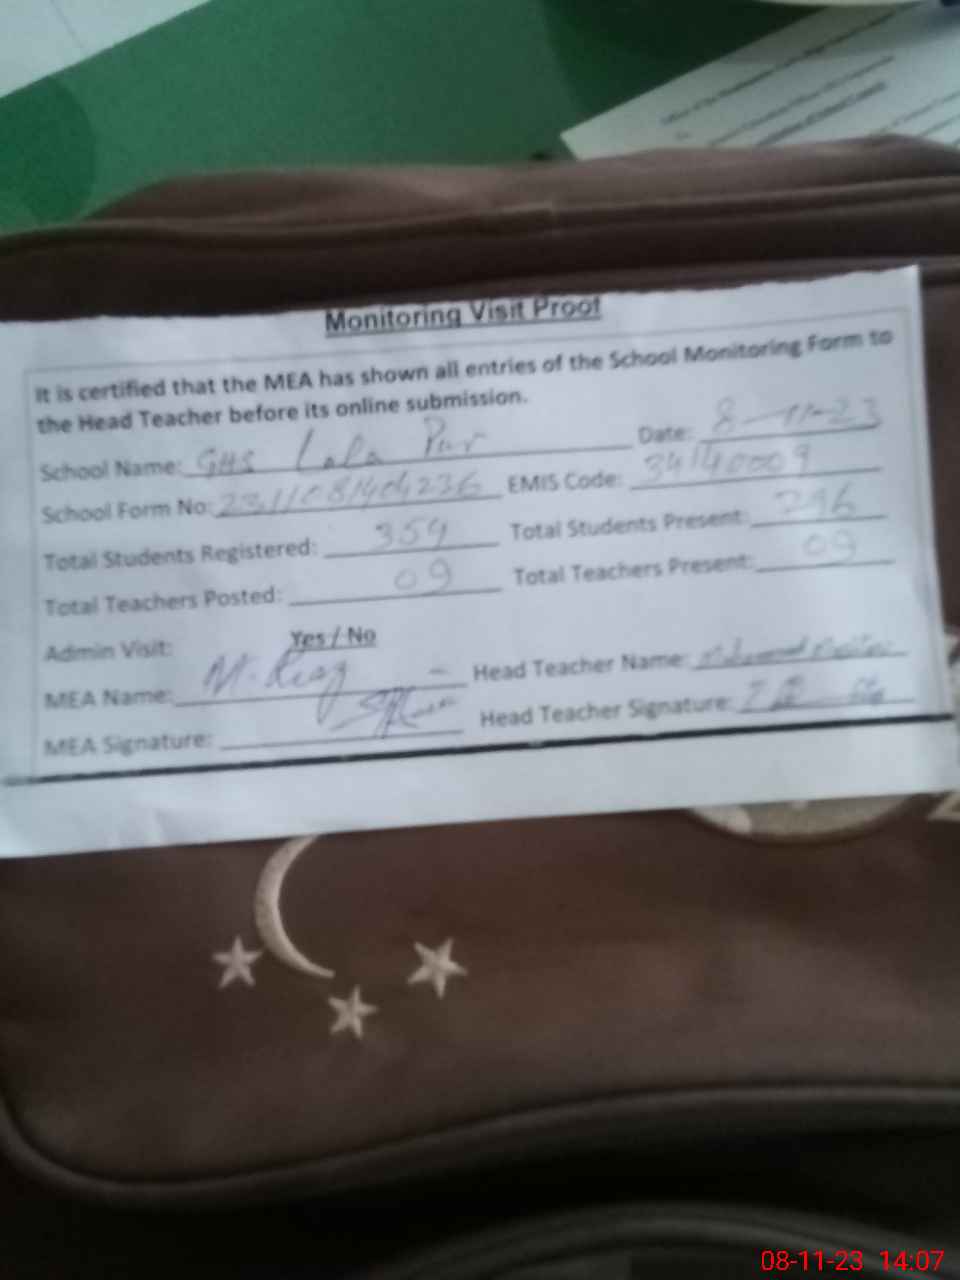 Monitoring Visit Proof
It is certified that the MEA has shown all entries of the School Monitoring Form to
the Head Teacher before its online submission.
School Name: GHS Lala Pur Date: 8-11-23
School Form No: 2311081404236 EMIS Code: 34140009
Total Students Registered: 359 Total Students Present: 296
Total Teachers Posted: 09 Total Teachers Present: 09
Admin Visit: Yes / No
MEA Name: M. Riaz Head Teacher Name: Muhammad
MEA Signature: Head Teacher Signature:
08-11-23 14:07